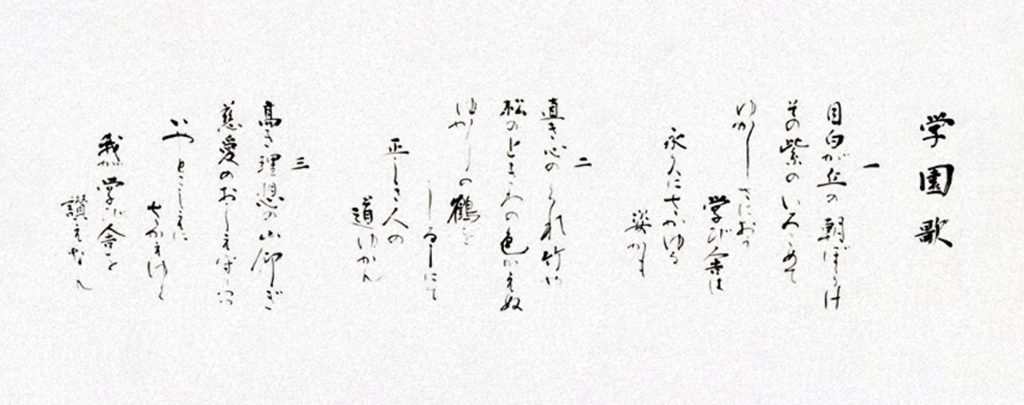 学園歌
一
目白が丘の朝ぼらけ
その紫のいろこめて
ゆかしさにおう
学び舎は
永久にさかゆる
姿かも
二
直き心のくれ竹に
松のみさおの色かえぬ
の鶴を
しるしにて
正しき人の
道ゆかん
三
高き理想の山仰ぎ
慈愛のおしえ守りつつ
いやとこしえに
さかえゆく
我が学び舎を
讃えなん